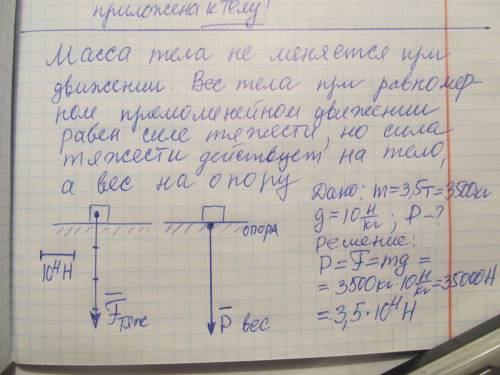 приложена к телу!
Масса тела не меняется при
движении. Вес тела при равномер-
ном прямоменейном движении
равен силе тяжести, но сила
тяжести действует, на тело,
а вес на опору
Дано: m=3,5т=3500кг
g=10 Н/кг; P-?
Решение:
P=F=mg=
=3500кг·10 Н/кг=35000Н
=3,5·10⁴Н
опора
10⁴Н
F̅тяж
P̅ вес